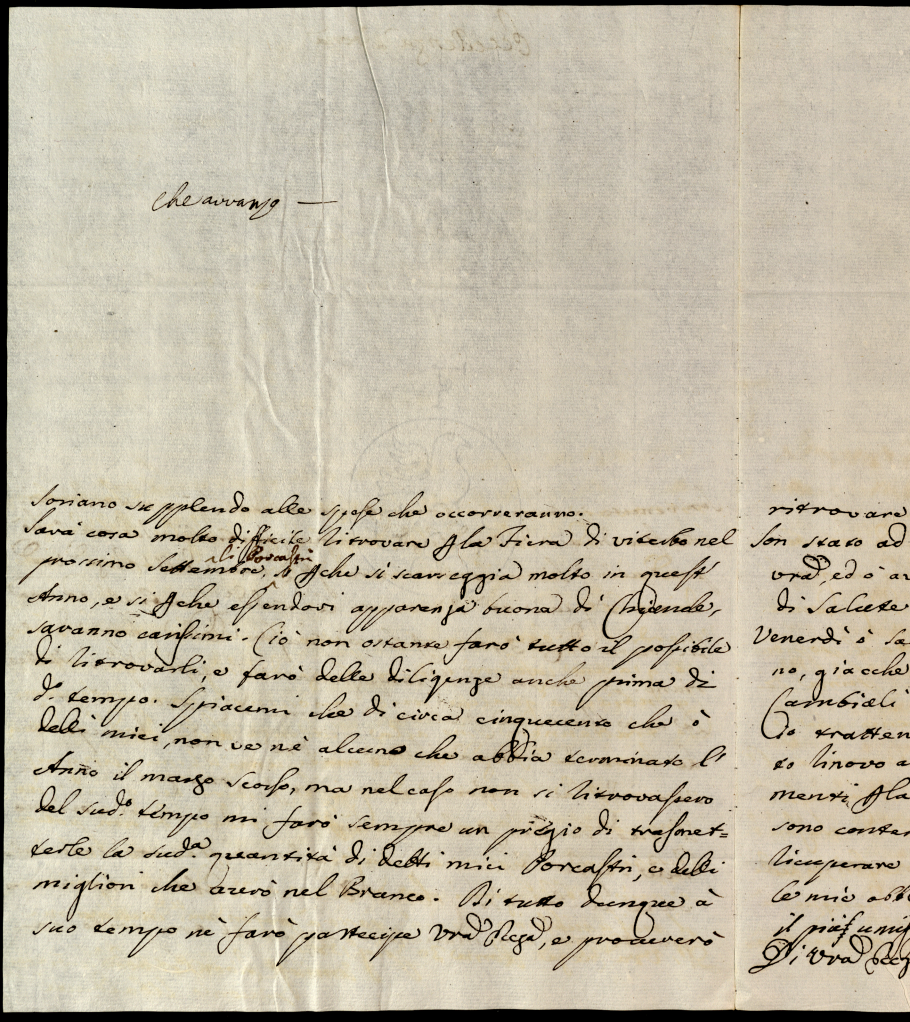 che avvanzo —
Soriano supplendo alle spese che occorreranno.
Sarà cosa molto difficile ritrovare p la Fiera di viterbo nel
li Porcastri
prossimo Settembre, si p che si scarseggia molto in quest'
Anno, e si p che essendovi apparenza buona di Ghiende,
saranno carissimi. Ciò non ostante farò tutto il possibile
di ritrovarli, e farò delle diligenze anche prima di
d.º tempo. Spiacemi che di circa cinquecento che ò
delli miei, non ve n'è alcuno che abbia terminato l'
Anno il marzo scorso, ma nel caso non si ritrovassero
del sud.º tempo mi farò sempre un pregio di trasmet=
terle la sud.ª quantità di detti miei Porcastri, e delli
migliori che averò nel Branco. Di tutto dunque à
suo tempo nè farò partecipe Vrã, e procurerò
ritrovare
son stato ad
Vrã, ed ò
di Salute
Venerdì ò
no, giacche
Cambiali
Io tratten
to rinovo a
menti, p la
sono conten
ricuperare
le mie obb
il più
Di Vrã